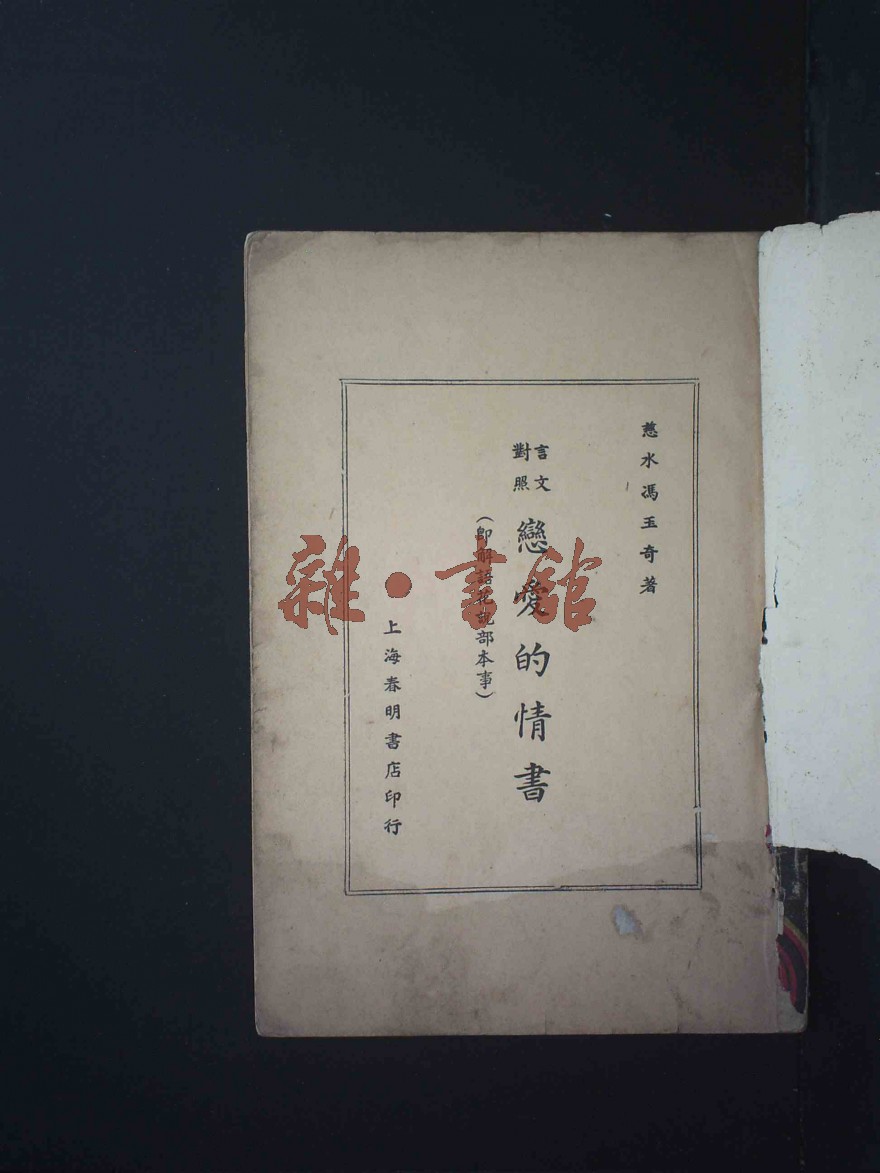 慈水馮玉奇著
言文對照
戀愛的情書
(即解語花說部本事)
上海春明書店印行
雜·書舘